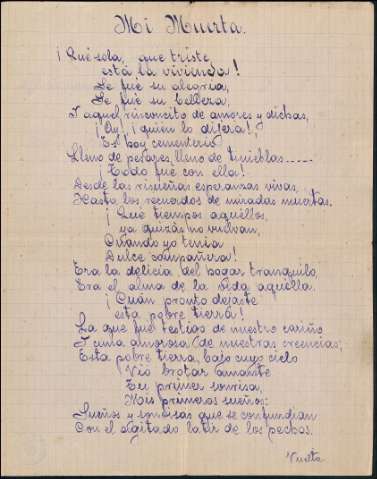 Mi Muerta.
¡Qué sola, que triste
está la vivienda!
Se fué su alegria,
Se fué su belleza,
Y aquel rinconcito de amores y dichas,
¡Ay! ¡quien lo dijera!,
Es hoy cementerio
Lleno de pesares, lleno de tinieblas.....
¡Todo fué con ella!
Desde las risueñas esperanzas vivas,
Hasta los recuerdos de miradas muertas.
¡Qué tiempos aquellos,
ya quizás no vuelvan,
Cuando yo tenia
Dulce compañera!
Era la delicia del hogar tranquilo,
Era el alma de la vida aquella.
¡Cuán pronto dejaste
esta pobre tierra!
La que fué testigo de nuestro cariño
Y cuna amorosa, de nuestras creencias;
Esta pobre tierra, bajo cuyo cielo
Vió brotar amante
Tu primer sonrisa,
Mis primeros sueños;
Sueños y sonrisas que se confundian
Con el agitado latir de los pechos.
Vuelta